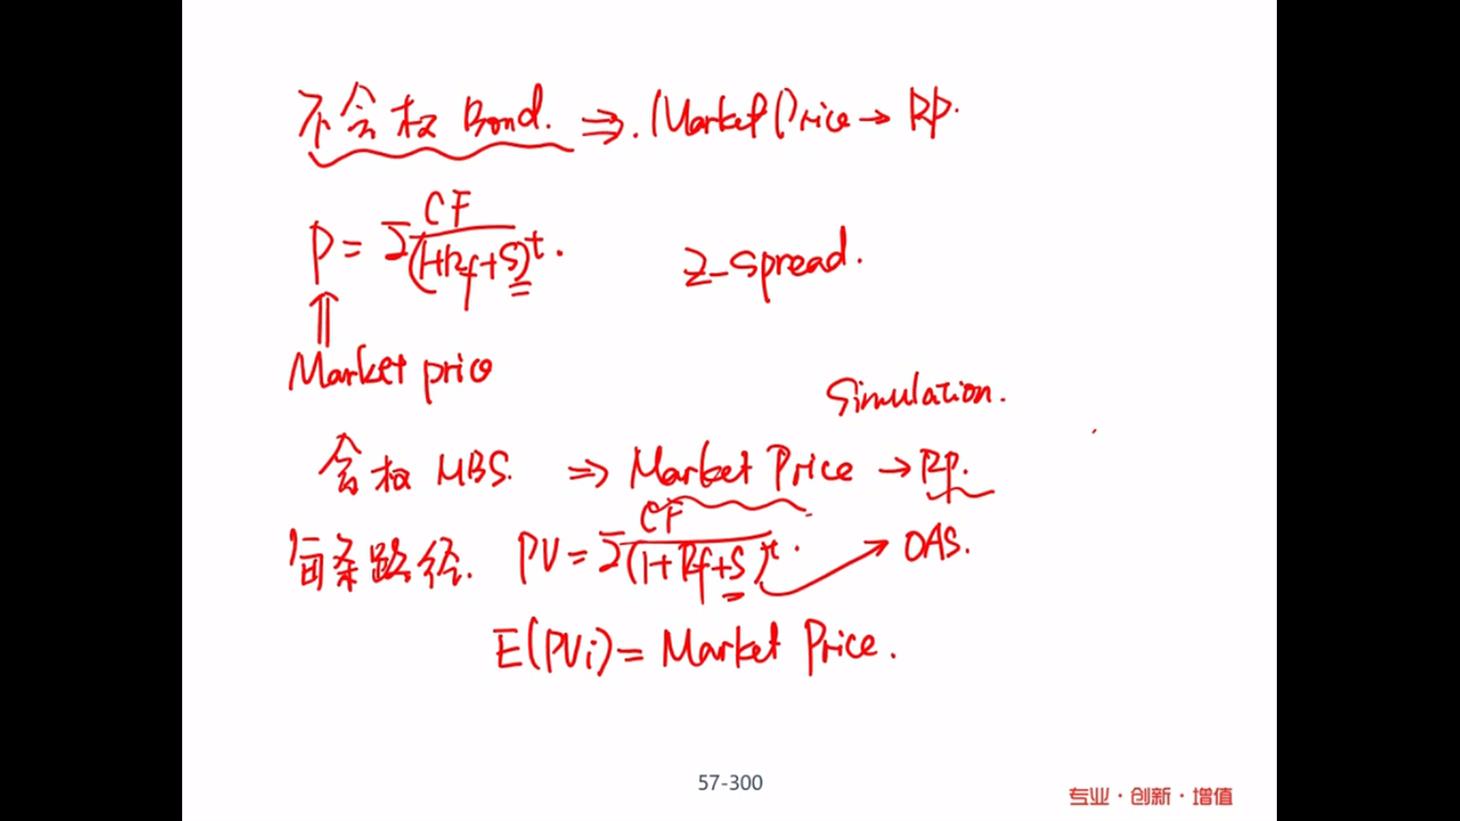 不含权 Bond. ⇒. Market Price → RP.
P = Σ CF/(1+Rf+S)^t.
Z-spread.
⇑
Market price
Simulation.
含权 MBS. ⇒ Market Price → RP.
每条路径. PV = Σ CF/(1+Rf+S)^t. → OAS.
E(PVi) = Market Price.
57-300
专业·创新·增值